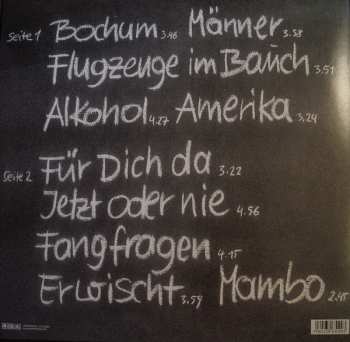 Seite 1 Bochum 3.46 Männer 3.53
Flugzeuge im Bauch 3.51
Alkohol 4.27 Amerika 3.24
Seite 2 Für Dich da 3.22
Jetzt oder nie 4.56
Fangfragen 4.15
Erwischt 3.59 Mambo 2.45